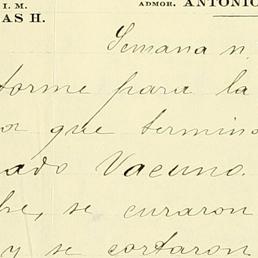 I. M. ADMOR. ANTONIO
AS H.
Semana n.
forme para la
or que termino
ado Vacuno.
re, se curaron
y se cortaron